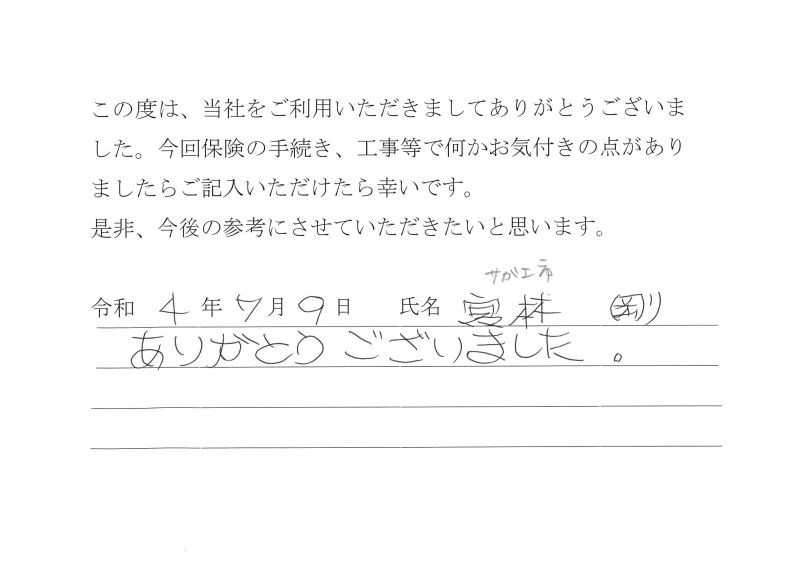 この度は、当社をご利用いただきましてありがとうございま
した。今回保険の手続き、工事等で何かお気付きの点があり
ましたらご記入いただけたら幸いです。
是非、今後の参考にさせていただきたいと思います。
サガエ市
令和 4 年 7 月 9 日 氏名 宮林 剛
ありがとうございました。